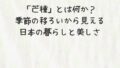 「芒種」とは何か?
季節の移ろいから見える
日本の暮らしと美しさ